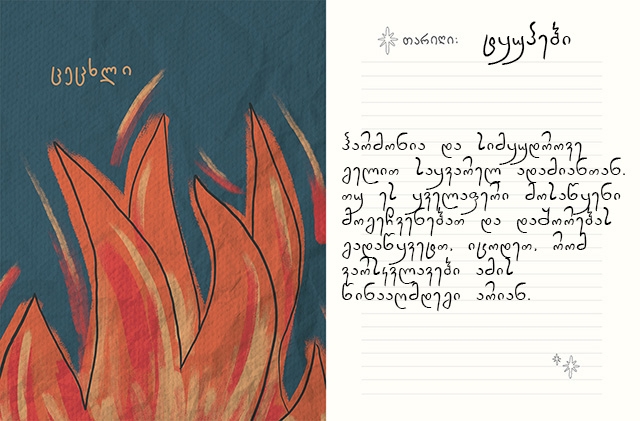 ცეცხლი
თარიღი:
ტყუპები
ჰარმონია და სიმყუდროვე
გელით საყვარელ ადამიანთან.
თუ ეს ყველაფერი მოსაწყენი
მოგეჩვენებათ და დაშორებას
გადაწყვეტთ, იცოდეთ, რომ
ვარსკვლავები ამის
წინააღმდეგი არიან.